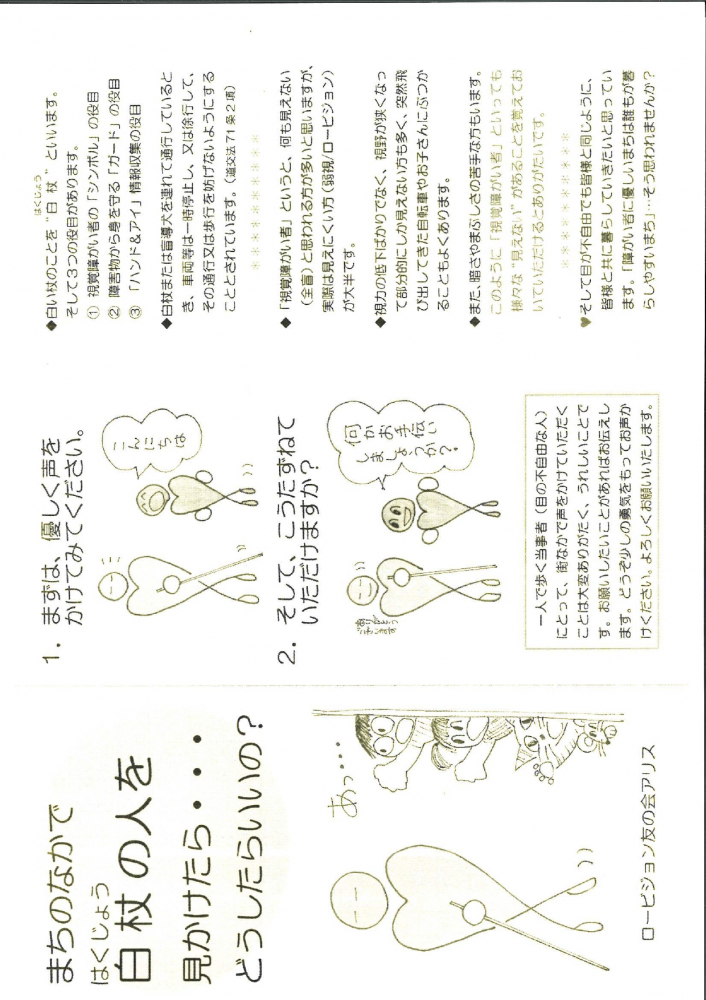 まちのなかで
はくじょう
白杖の人を
見かけたら・・・
どうしたらいいの？
あっ・・・
ロービジョン友の会アリス
1．まずは、優しく声を
かけてみてください。
こんにちは
2．そして、こうたずねて
いただけますか？
何かお手伝い
しましょうか？
ありがとう
ございます
一人で歩く当事者（目の不自由な人）
にとって、街なかで声をかけていただく
ことは大変ありがたく、うれしいことで
す。お願いしたいことがあればお伝えし
ます。どうぞ少しの勇気をもってお声か
けください。よろしくお願いいたします。
はくじょう
◆白い杖のことを“白杖”といいます。
そして3つの役目があります。
① 視覚障がい者の「シンボル」の役目
② 障害物から身を守る「ガード」の役目
③ 「ハンド＆アイ」情報収集の役目
◆白杖または盲導犬を連れて通行していると
き、車両等は一時停止し、又は徐行して、
その通行又は歩行を妨げないようにする
こととされています。（道交法71条2項）
＊＊＊＊＊＊＊＊＊＊
◆「視覚障がい者」というと、何も見えない
（全盲）と思われる方が多いと思いますが、
実際は見えにくい方（弱視/ロービジョン）
が大半です。
◆視力の低下ばかりでなく、視野が狭くなっ
て部分的にしか見えない方も多く、突然飛
び出してきた自転車やお子さんにぶつか
ることもよくあります。
◆また、暗さやまぶしさの苦手な方もいます。
このように「視覚障がい者」といっても
様々な“見えない”があることを覚えてお
いていただけるとありがたいです。
＊＊＊＊＊＊＊＊＊＊
♥そして目が不自由でも皆様と同じように、
皆様と共に暮らしていきたいと思ってい
ます。「障がい者に優しいまちは誰もが暮
らしやすいまち」…そう思われませんか？